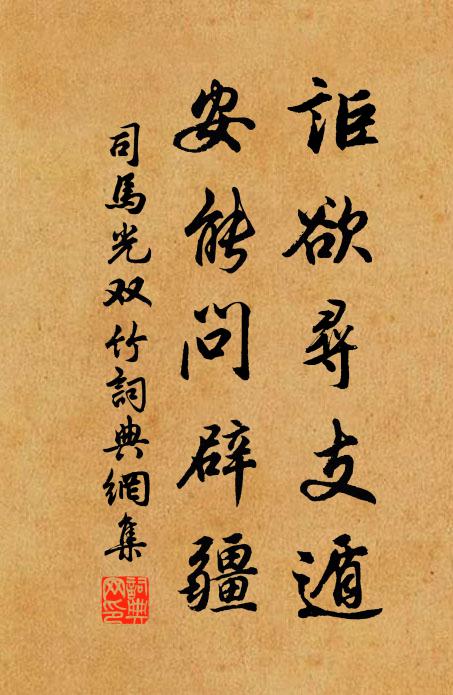 詎欲尋支遁
安能問辟疆
司馬光双竹詞典網集
詞典
网印